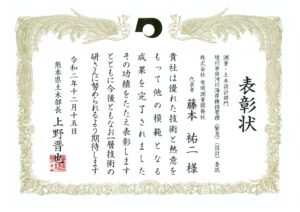 表彰状
測量・土木設計部門
境川単県河川海岸維持管理(緊急)(設計)委託
株式会社 有明測量開発社
代表者 藤本 祐二 様
貴社は優れた技術と熱意を
もって他の模範となる
成果を完了されました
その功績をたたえ表彰します
とともに今後ともなお一層技術の
研さんに努められるよう期待します
令和二年十二月十五日
熊本県土木部長 上野 晋也